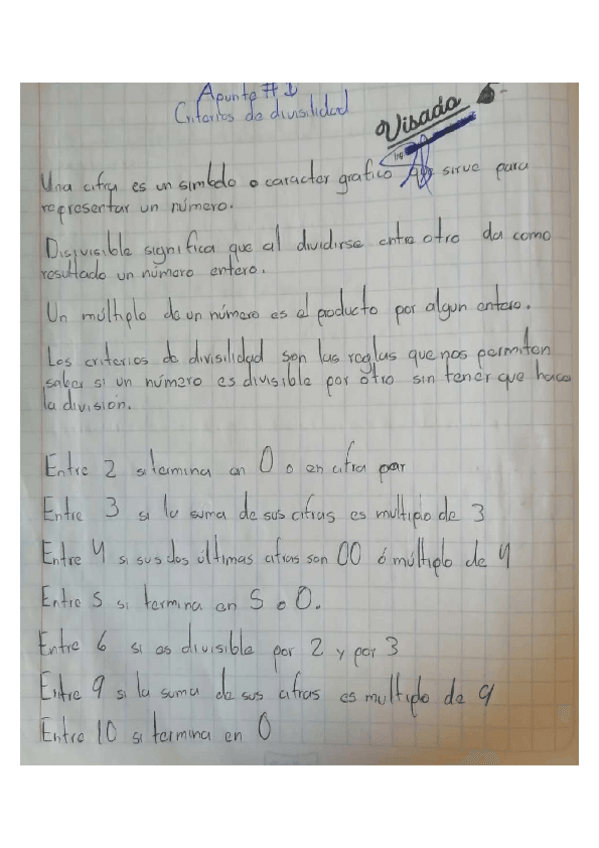 Apunte # 1
Criterios de divisilidad
Visado
Una cifra es un simbolo o caracter grafico sirve para
representar un número.
Disivisible significa que al dividirse entre otro da como
resultado un número entero.
Un múltiplo de un número es el producto por algun entero.
Los criterios de divisilidad son las reglas que nos permiten
saber si un número es divisible por otro sin tener que hacer
la división.
Entre 2 si termina en 0 o en cifra par
Entre 3 si la suma de sus cifras es multiplo de 3
Entre 4 si sus dos últimas cifras son 00 ó múltiplo de 4
Entre 5 si termina en 5 o 0.
Entre 6 si es divisible por 2 y por 3
Entre 9 si la suma de sus cifras es multiplo de 9
Entre 10 si termina en 0